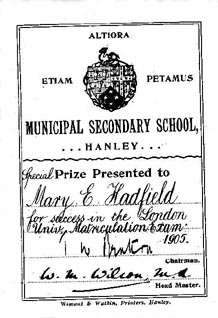 ALTIORA
ETIAM PETAMUS
MUNICIPAL SECONDARY SCHOOL,
...HANLEY...
Special Prize Presented to
Mary E. Hadfield
for success in the London
Univ. Matriculation Exam:
1905.
Chairman.
W. M. Wilson, M.A.
Head Master.
Wood & Watkin, Printers, Hanley.